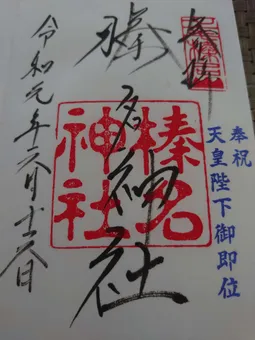 奉拝
奉祝
天皇陛下御即位
榛名神社
榛名神社
令和元年六月十六日